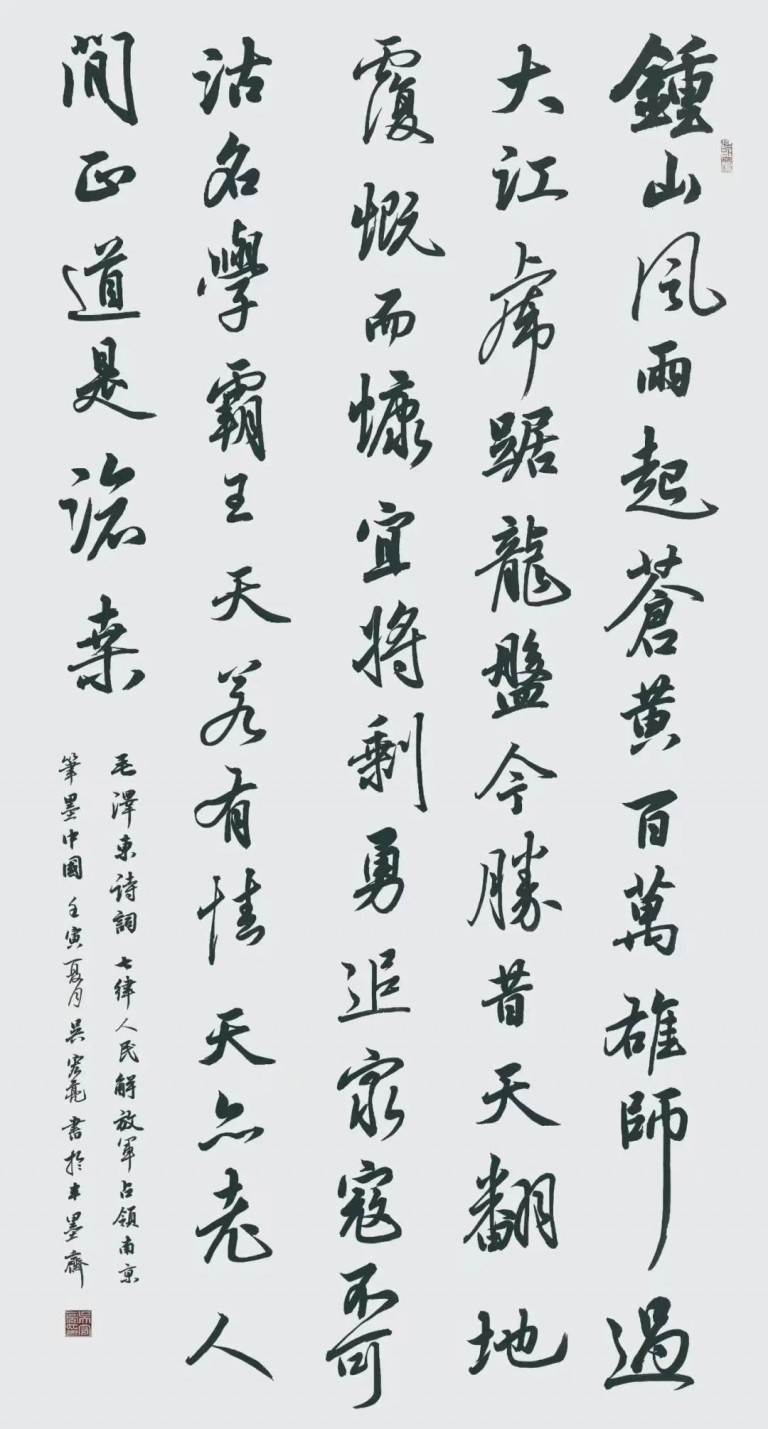 鍾山風雨起蒼黃百萬雄師過
大江虎踞龍盤今勝昔天翻地
覆慨而慷宜將剩勇追窮寇不可
沽名學霸王天若有情天亦老人
間正道是滄桑
毛澤東詩詞 七律人民解放軍占領南京
筆墨中國 壬寅夏月 吳宏亮 書於墨齋